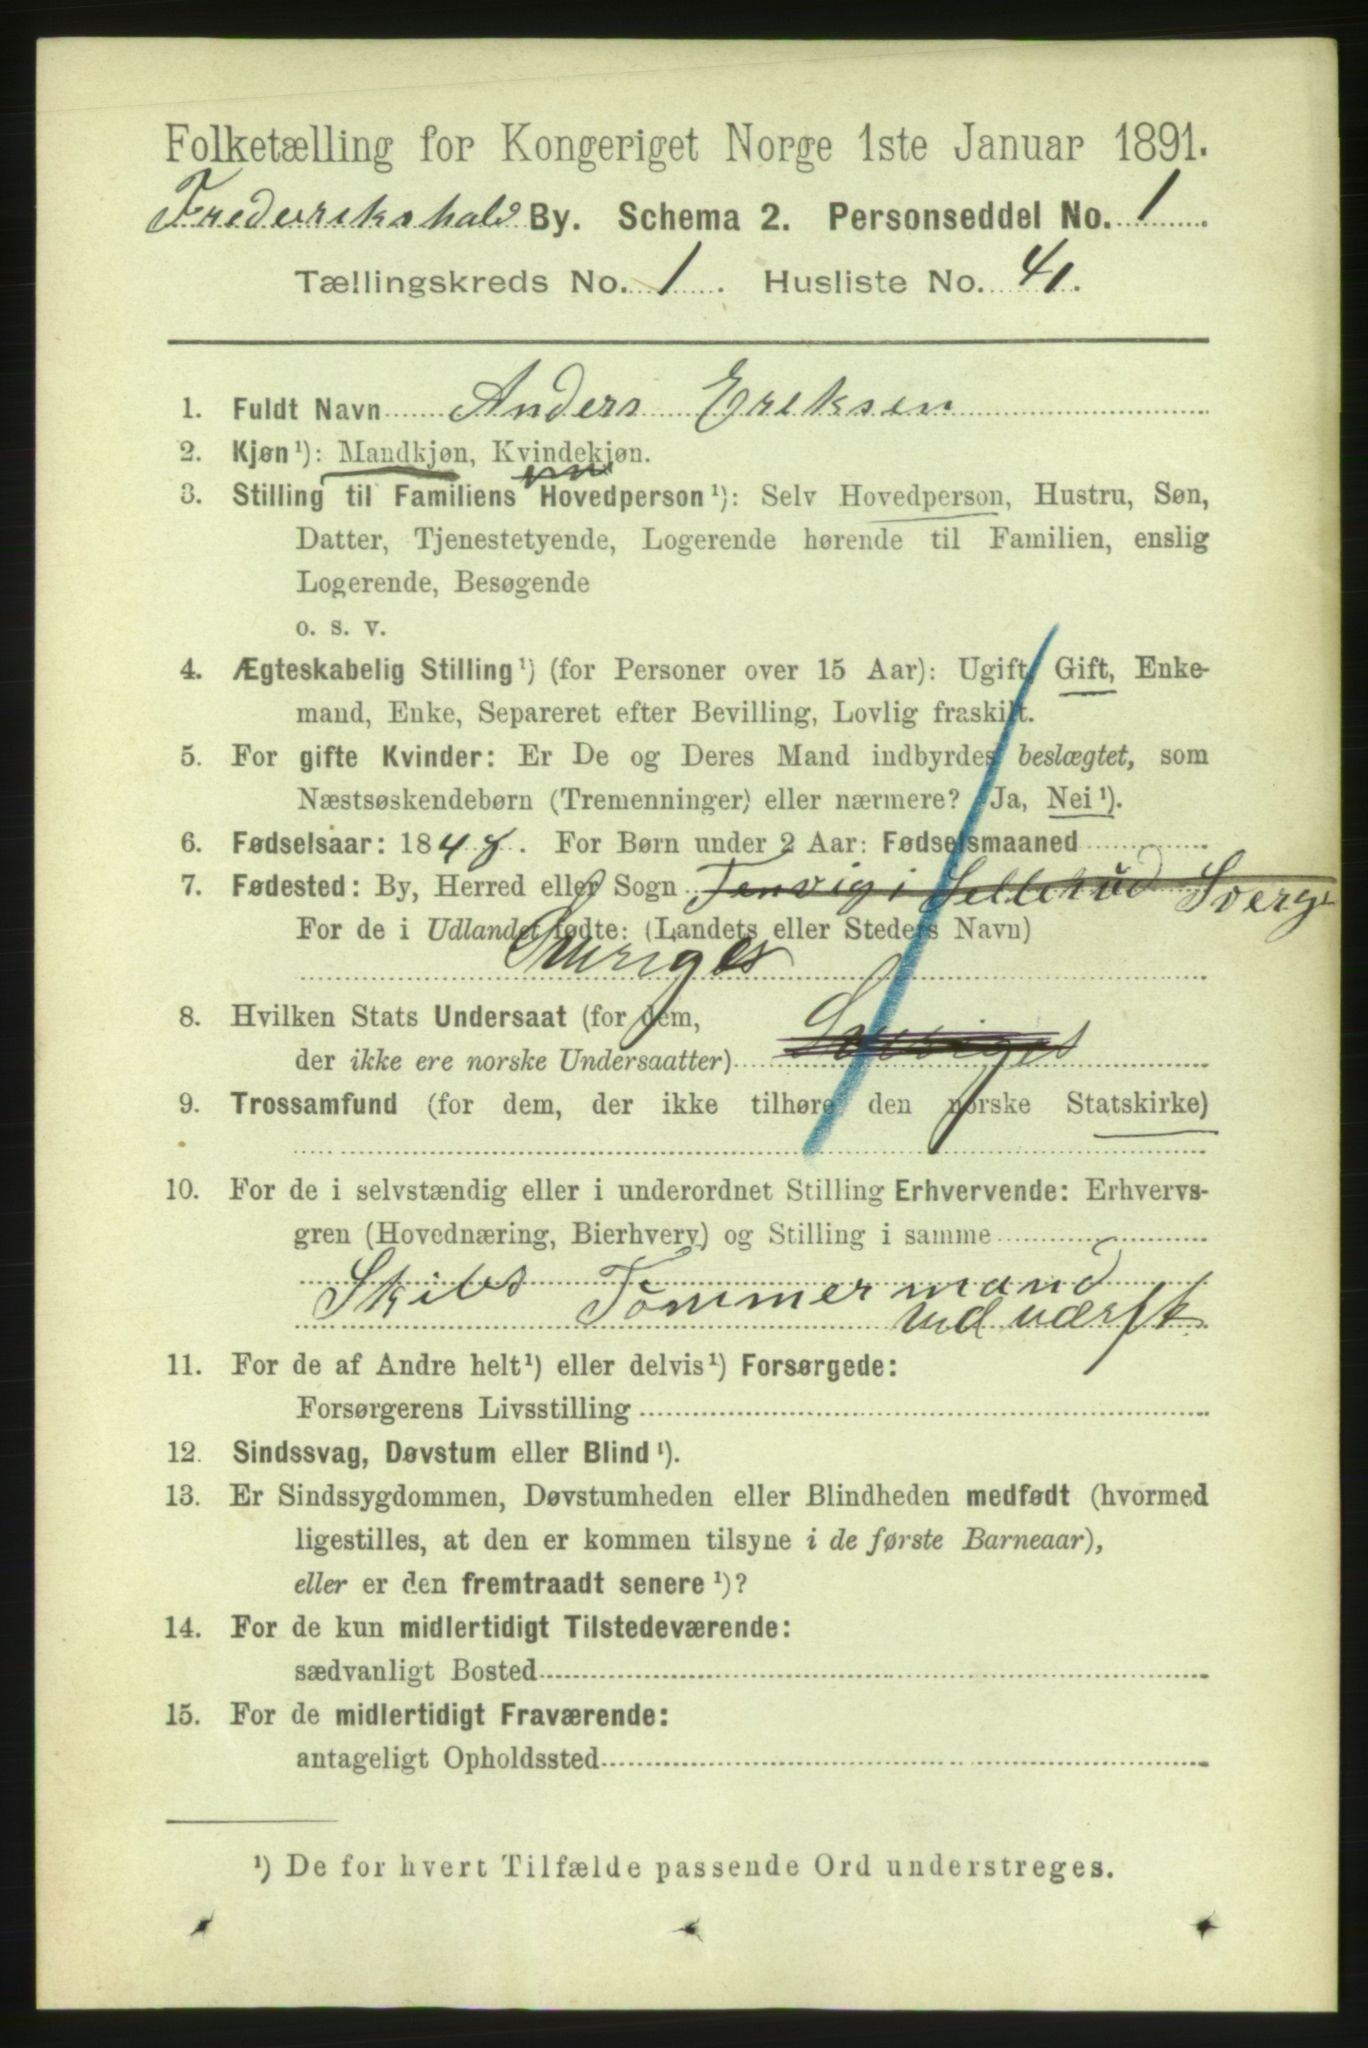 Folketælling for Kongeriget Norge 1ste Januar 1891.
Frederikshald By. Schema 2. Personseddel No. 1
Tællingskreds No. 1. Husliste No. 41.
1. Fuldt Navn Anders Eriksen
2. Kjøn¹): Mandkjøn, Kvindekjøn.
3. Stilling til Familiens Hovedperson¹): Selv Hovedperson, Hustru, Søn,
Datter, Tjenestetyende, Logerende hørende til Familien, enslig
Logerende, Besøgende
o. s. v.
4. Ægteskabelig Stilling¹) (for Personer over 15 Aar): Ugift, Gift, Enke-
mand, Enke, Separeret efter Bevilling, Lovlig fraskilt.
5. For gifte Kvinder: Er De og Deres Mand indbyrdes beslægtet, som
Næstsøskendebørn (Tremenninger) eller nærmere? Ja, Nei¹).
6. Fødselsaar: 1848. For Børn under 2 Aar: Fødselsmaaned
7. Fødested: By, Herred eller Sogn i Sverge
For de i Udlandet fødte: (Landets eller Stedets Navn)
Sveriges
8. Hvilken Stats Undersaat (for dem,
der ikke ere norske Undersaatter) Sveriges
9. Trossamfund (for dem, der ikke tilhøre den norske Statskirke)
10. For de i selvstændig eller i underordnet Stilling Erhvervende: Erhvervs-
gren (Hovednæring, Bierhverv) og Stilling i samme
Skibs Tömmermand
ved værft
11. For de af Andre helt¹) eller delvis¹) Forsørgede:
Forsørgerens Livsstilling
12. Sindssvag, Døvstum eller Blind¹).
13. Er Sindssygdommen, Døvstumheden eller Blindheden medfødt (hvormed
ligestilles, at den er kommen tilsyne i de første Barneaar),
eller er den fremtraadt senere¹)?
14. For de kun midlertidigt Tilstedeværende:
sædvanligt Bosted
15. For de midlertidigt Fraværende:
antageligt Opholdssted
¹) De for hvert Tilfælde passende Ord understreges.